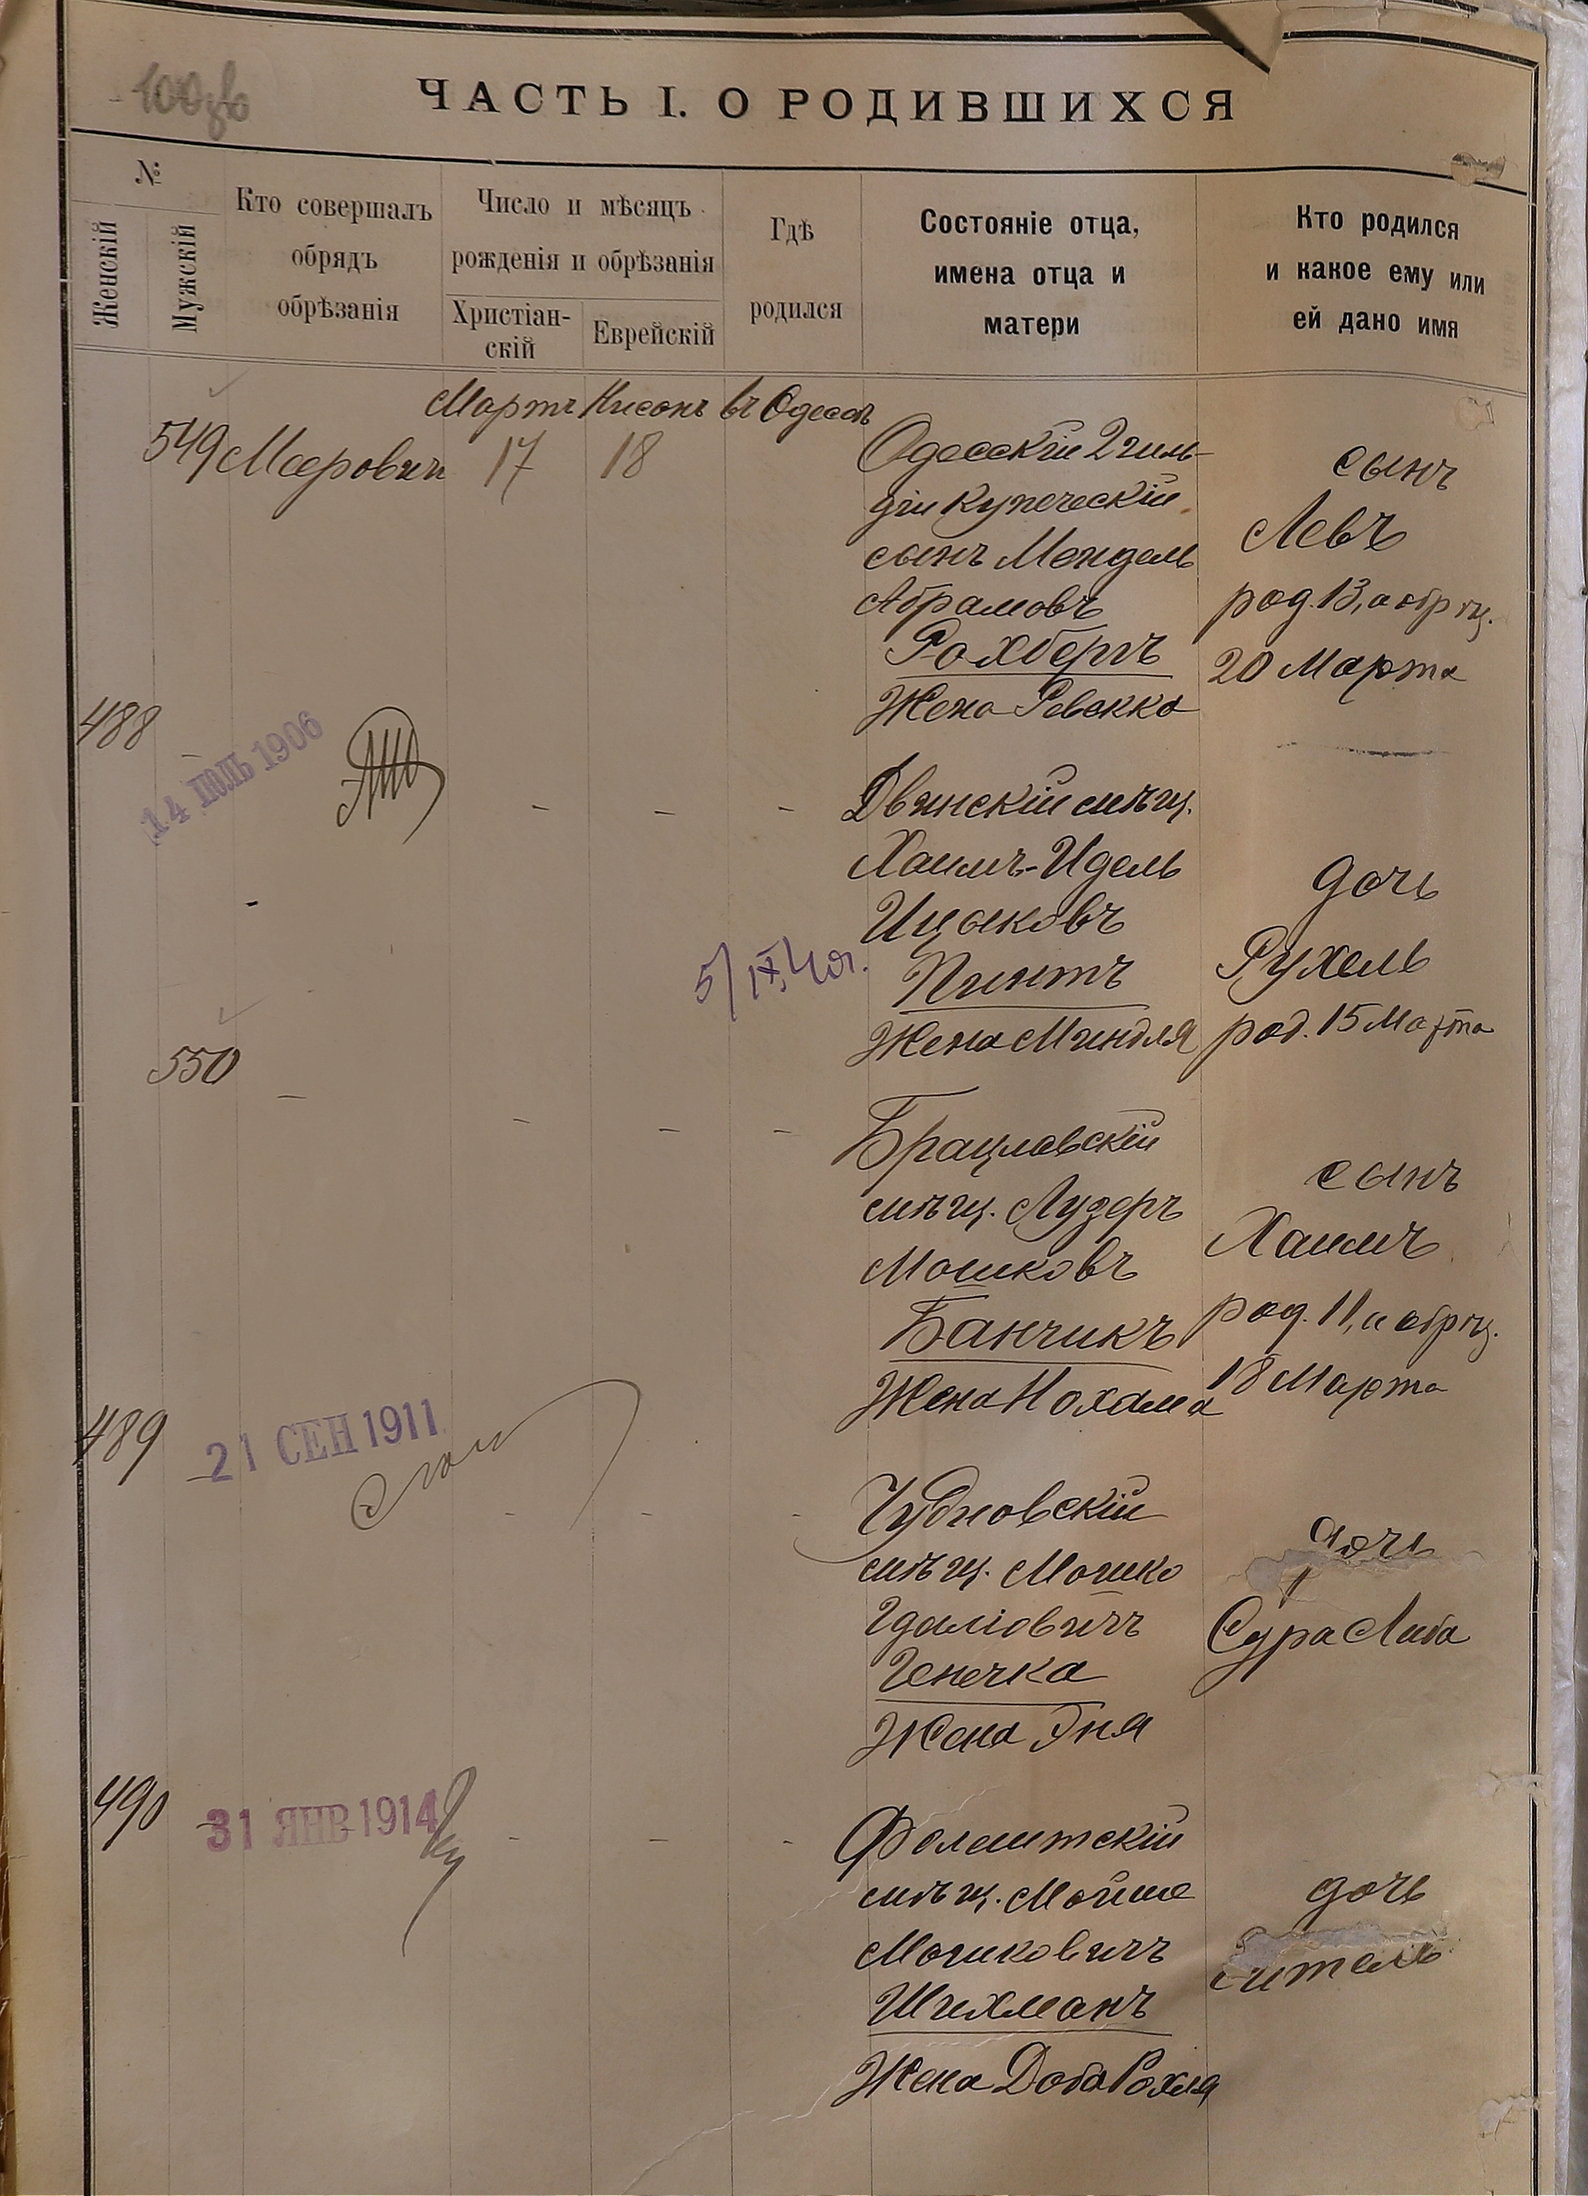 100
ЧАСТЬ I. О РОДИВШИХСЯ
№
Женскій
Мужскій
Кто совершалъ
обрядъ
обрѣзанія
Число и мѣсяцъ
рожденія и обрѣзанія
Христіан-
скій
Еврейскій
Гдѣ
родился
Состояніе отца,
имена отца и
матери
Кто родился
и какое ему или
ей дано имя
Мартъ Нисонъ въ Одессѣ
549 Мееровичъ 17 18
Одесскій 2 гиль-
діи купеческій
сынъ Мендель
Абрамовъ
Рохбергъ
Жена Ревекка
сынъ
Левъ
род. 13, а обрѣз.
20 Марта
488
14 ІЮЛЬ 1906
- - -
Двинскій мѣщ.
Хаимъ-Идель
Ицыковъ
Пинтъ
Жена Миндля
5/IX
дочь
Рухель
род. 15 Марта
550
- - - -
Брацлавскій
мѣщ. Лузеръ
Мошковъ
Банчикъ
Жена Нохама
сынъ
Хаимъ
род. 11, и обрѣз.
18 Марта
489
21 СЕН 1911
- - -
Чудновскій
мѣщ. Мошко
Гдаліовичъ
Генечка
Жена Эня
дочь
Сура Либа
490
31 ЯНВ 1914
- - -
Фолештскій
мѣщ. Мойше
Мошковичъ
Шихманъ
Жена Доба Рохля
дочь